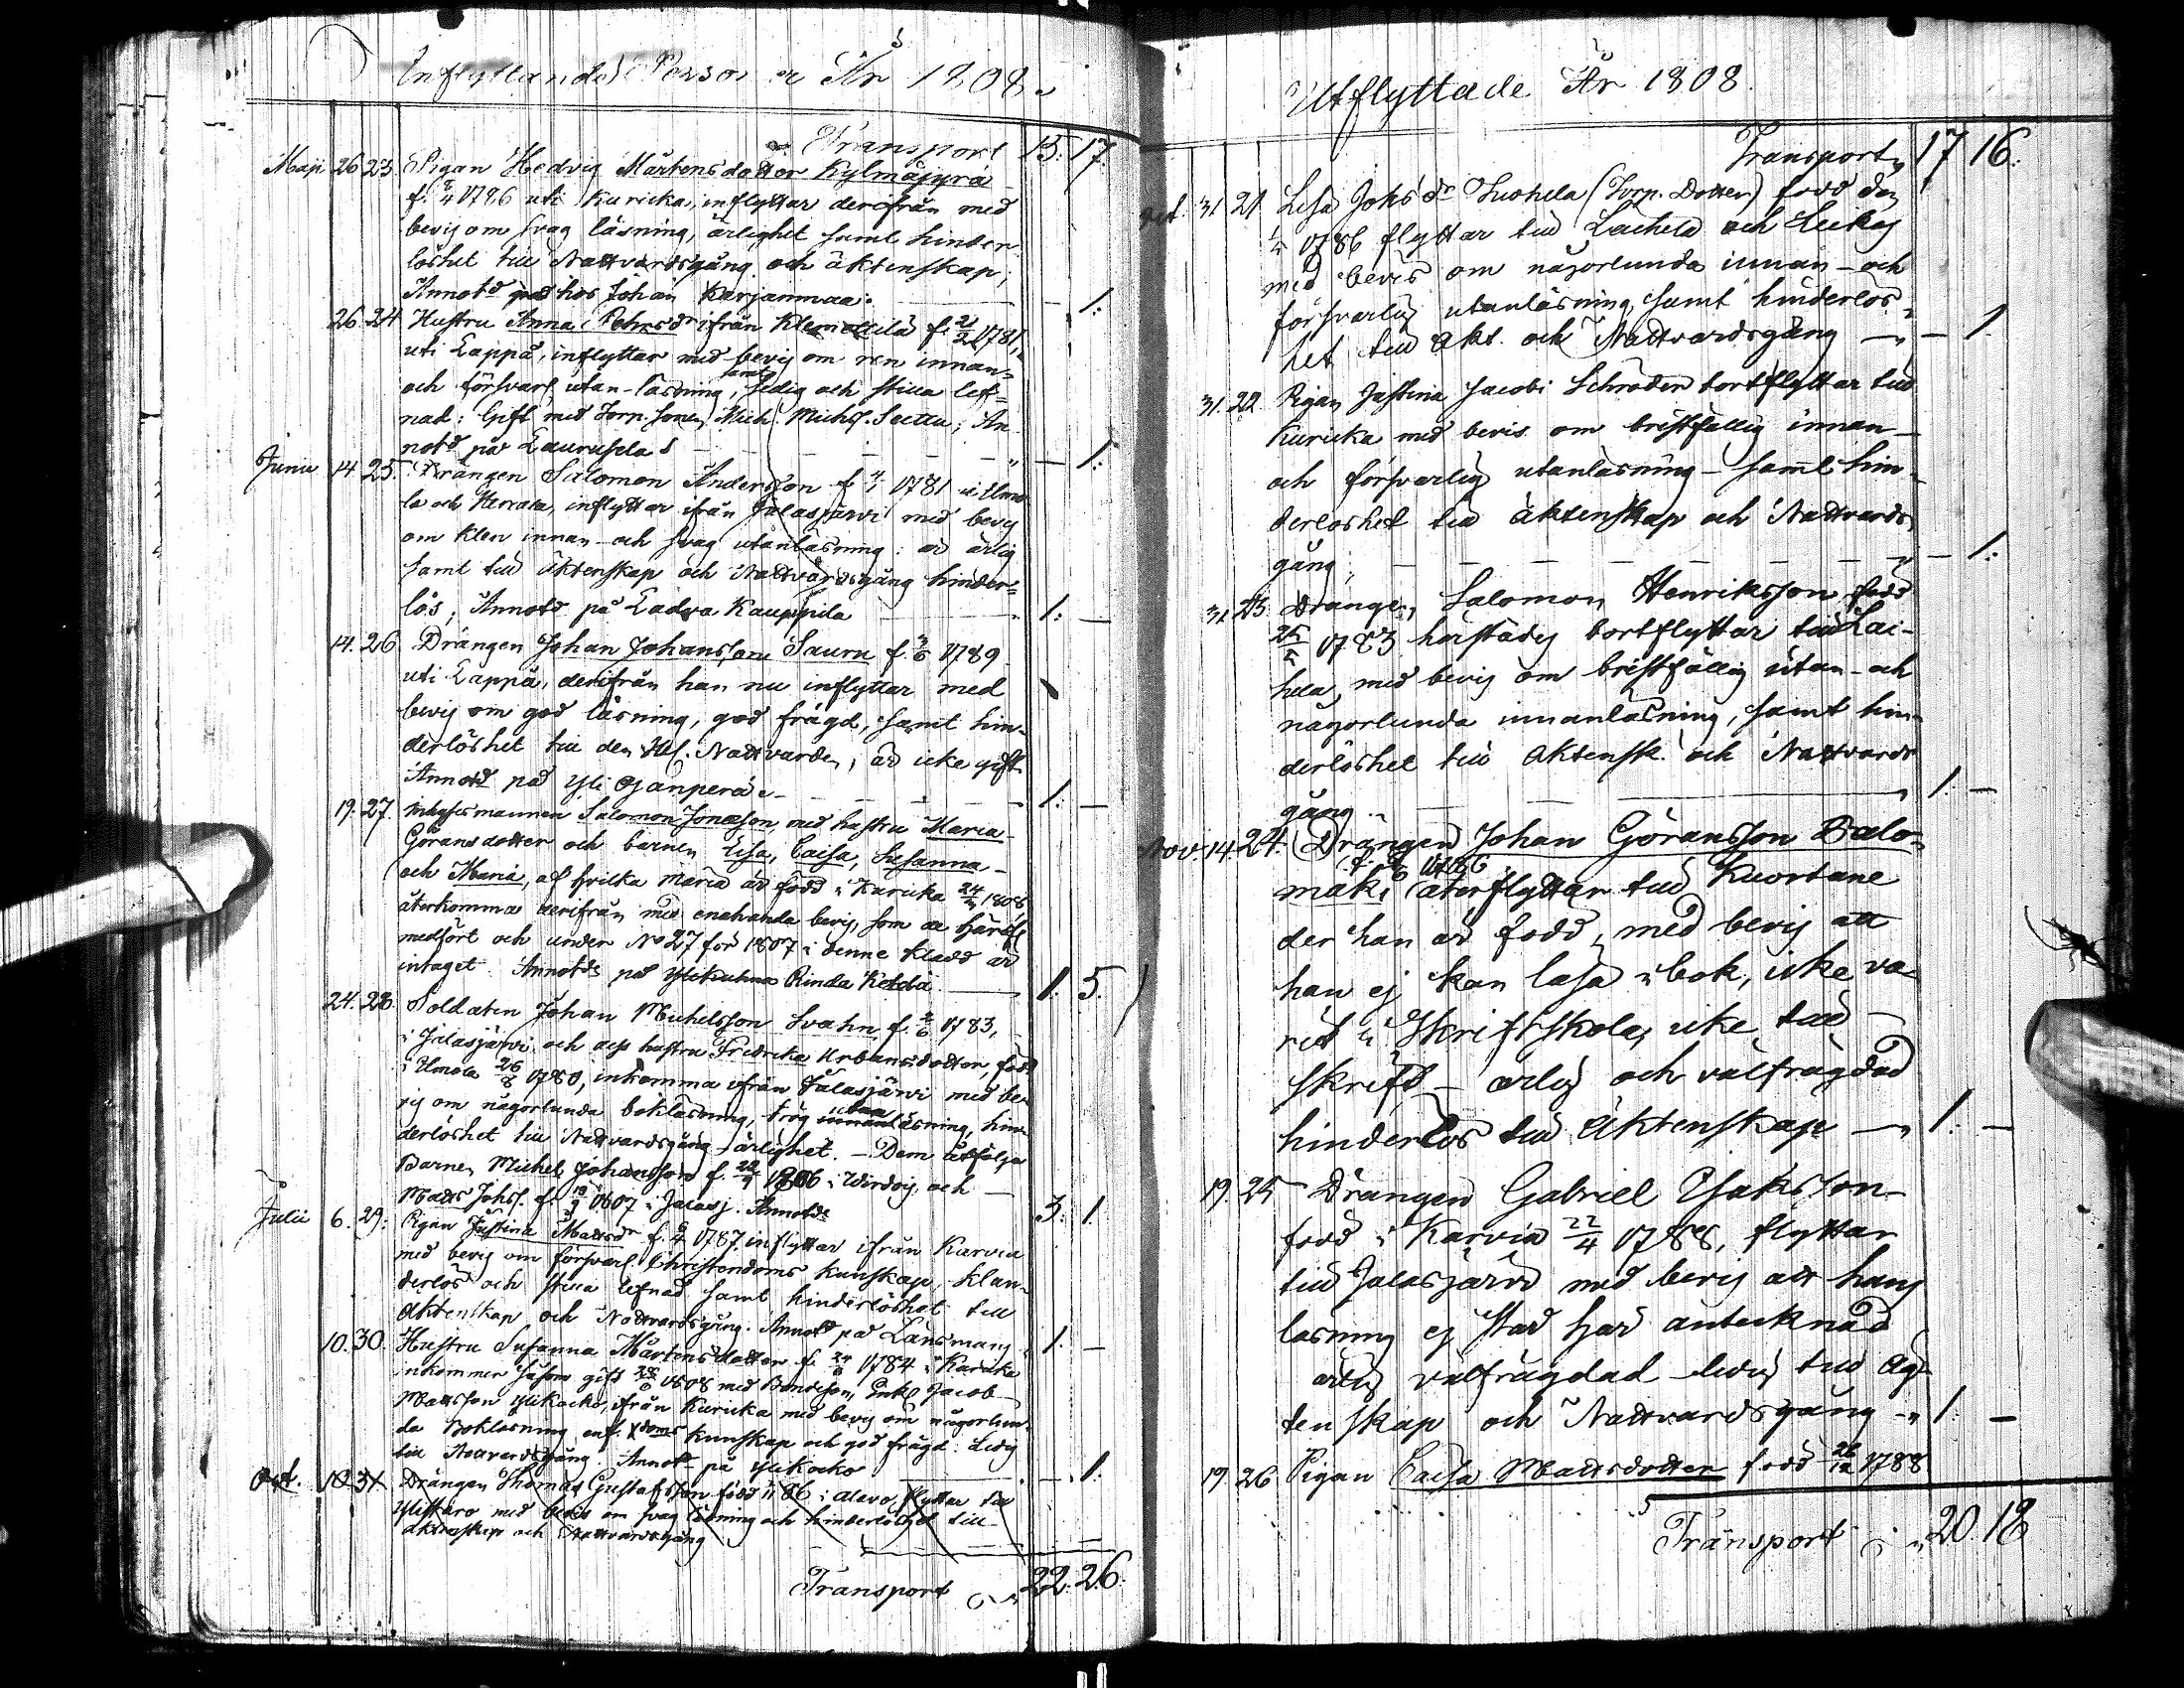 Inflyttande Personer År 1808.
Transport 15: 17.
Maji 26 23 Pigan Hedvig Mårtensdotter Kylmäjyrä
f. 1786 uti Kuricka, inflyttar derifrån med
bevis om svag läsning, ärlighet samt hinder
löshet till Nattvardsgång och äktenskap;
Annotd hos Johan Karjanmaa. 1.
26. 24 Hustru Anna ifrån f. 2/2 1781,
uti Lappå, inflyttar med bevis om ren innan-
och försvarl. utan-läsning, samt sedig och stilla lef-
nad: Gift med Torp. Sonen Mich. Michs. ; An-
notd på Laurusela 1.
Junii 14. 25. Drängen Salomon Andersson f. 1781 i Ilmo
la och Herrala, inflyttar ifrån Jalasjärvi med bevis
om klen innan- och svag utanläsning: är ärlig
samt till äktenskap och Nattvardsgång hinder-
lös; Annotd på Ladva Kauppila 1: —
14. 26. Drängen Johan Johansson Sauru f. 1789
uti Lappå, derifrån han nu inflyttar med
bevis om god läsning, god frägd, samt hin-
derlöshet till den Hel. Nattvarden, är icke gift
Annotd på Yli Ojanperä. 1: —
19. 27. Inhysesmannen Salomon Jonasson, med hustru Maria
Göransdotter och barnen Lisa, Caisa, Susanna
och Maria, af hvilka Maria är född i Kuricka 1808,
återkomma derifrån med enahanda bevis som de härifr.
medfört och under No 27 för 1807 i denne Kladd är
intaget. Annotds på Rinda Ketola 1. 5.
24. 28. Soldaten Johan Michelsson Svahn f. 1783,
i Jalasjärvi och dess hustru Fredrika Urbansdotter, född
i Ilmola 26/8 1780, inkomma ifrån Jalasjärvi med be-
vis om någorlunda bokläsning, trög utanläsning, hin-
derlöshet till Nattvardsgång ärlighet. — Dem åtfölja
Barnen Michel Johansson f. 1806 i Wirdois och
Matts Johs. f. 1807 i Jalasj. Annotds 3: 1.
Julii 6. 29: Pigan Justina Mattsdr f. 1787 inflyttar ifrån Karvia
med bevis om försvarl. Christendoms kunskap, klan-
derlös och stilla lefnad samt hinderlöshet till
äktenskap och Nattvardsgång. Annotd på Länsmans 1. —
10. 30. Hustru Susanna Mårtensdotter f. 1784 i Kuricka
inkommer såsom gift 1808 med Bondeson Enkl. Jacob
Mattsson Ylikocko, ifrån Kuricka med bevis om någorlun-
da Bokläsning, kunskap och god frägd. Ledig
till Nattvardsgång. Annotd på Ylikocko — 1.
Oct. 10. 31. Drängen Thomas Gustafsson född 1786 i Alavo flyttar till
Ylistaro med bevis om svag läsning och hinderlöshet till
äktenskap och Nattvardsgång
Transport 22. 26.
Utflyttade År 1808.
Transport 17 16.
Oct. 31 21 Lisa Johsdr Luohela (Torp. Dotter) född den
1786 flyttar till Laihela och
med bevis om någorlunda innan- och
försvarlig utanläsning, samt hinderlös-
het till äkt. och Nattvardsgång — 1
31. 22. Pigan Justina Jacobi Schroder bortflyttar till
Kuricka med bevis om bristfällig innan-
och försvarlig utanläsning — samt hin-
derlöshet till äktenskap och Nattvards
gång; — 1:
31. 23 Drängen Salomon Henriksson född
1783 härstädes bortflyttar till Lai-
hela, med bevis om bristfällig utan- och
någorlunda innanläsning, samt hin-
derlöshet till Äktensk. och Nattvards
gång 1: —
Nov. 14. 24. Drängen Johan Göransson Palo-
f. 1786
mäki återflyttar till Kuortane
der han är född, med bevis att
han ej kan läsa i bok, icke va-
rit i Skriftskola, icke till
skrift — ärlig och välfrägdad
hinderlös till Äktenskap 1: —
19. 25 Drängen Gabriel Isaksson
född i Karvia 22/4 1788, flyttar
till Jalasjärvi med bevis att hans
läsning ej står här antecknad
ärlig välfrägdad ledig till äg-
tenskap och Nattvardsgång 1: —
19. 26. Pigan Caisa Mattsdotter född 1788
Transport 20. 18